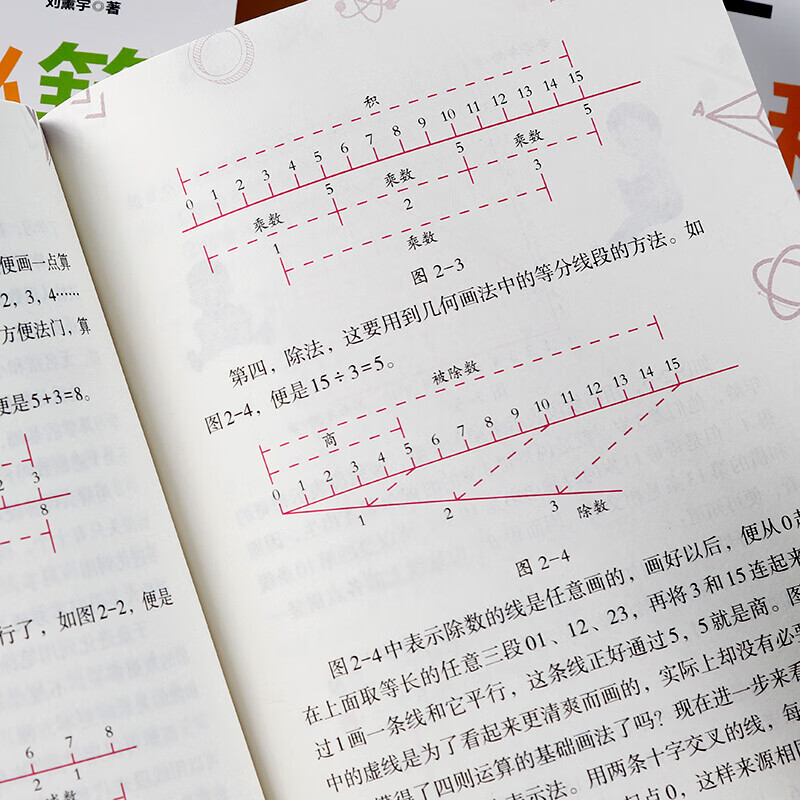 刘薰宇◎著
便画一点算
2，3，4……
方便法门，算
便是5+3=8。
3
8
行了，如图2-2，便是
6 7 8
2 1
积
0 1 2 3 4 5 6 7 8 9 10 11 12 13 14 15
5 5 5
乘数 乘数 乘数
1 2 3
乘数
图 2-3
第四，除法，这要用到几何画法中的等分线段的方法。如
图2-4，便是15÷3=5。
被除数
商
0 1 2 3 4 5 6 7 8 9 10 11 12 13 14 15
1 2 3 除数
图 2-4
图2-4中表示除数的线是任意画的，画好以后，便从0起
在上面取等长的任意三段01、12、23，再将3和15连起来
过1画一条线和它平行，这条线正好通过5，5就是商。图
中的虚线是为了看起来更清爽而画的，实际上却没有必要
懂得了四则运算的基础画法了吗？现在进一步来看
表示法。用两条十字交叉的线，每
起点0，这样来源相同
A